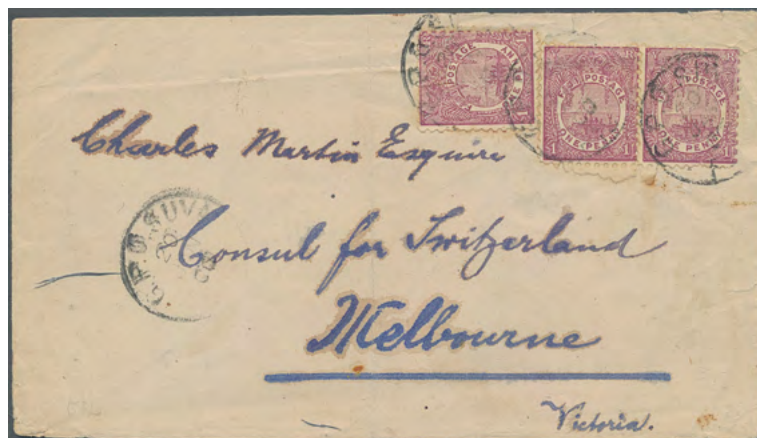 POSTAGE
POSTAGE
ONE PENNY
1
POSTAGE
ONE PENNY
1
Charles Martin Esquire
G.P.O. SUVA
20
Consul for Switzerland
Melbourne
Victoria.